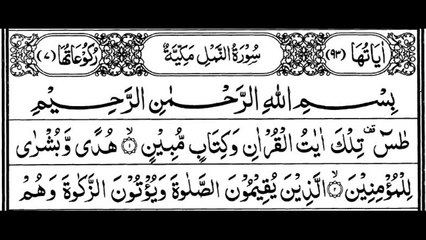 اٰيَاتُهَا (٩٣) سُوْرَةُ النَّمْلِ مَكِّيَّةٌ رُكُوْعَاتُهَا (٧)
بِسْمِ اللّٰهِ الرَّحْمٰنِ الرَّحِيْمِ
طٰسٓ ۚ تِلْكَ اٰيٰتُ الْقُرْاٰنِ وَكِتَابٍ مُّبِيْنٍ ۝١ هُدًى وَّبُشْرٰى
لِلْمُؤْمِنِيْنَ ۝٢ الَّذِيْنَ يُقِيْمُوْنَ الصَّلٰوةَ وَيُؤْتُوْنَ الزَّكٰوةَ وَهُمْ